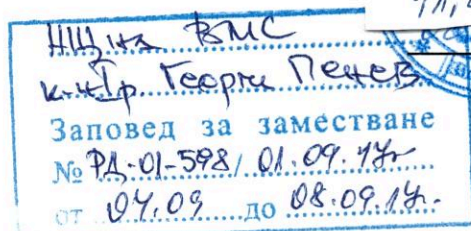 НЩ на ВМС
к-н I р. Георги Пенев
Заповед за заместване
№ РД-01-598/ 01.09.17г
от 04.09 до 08.09.17г.